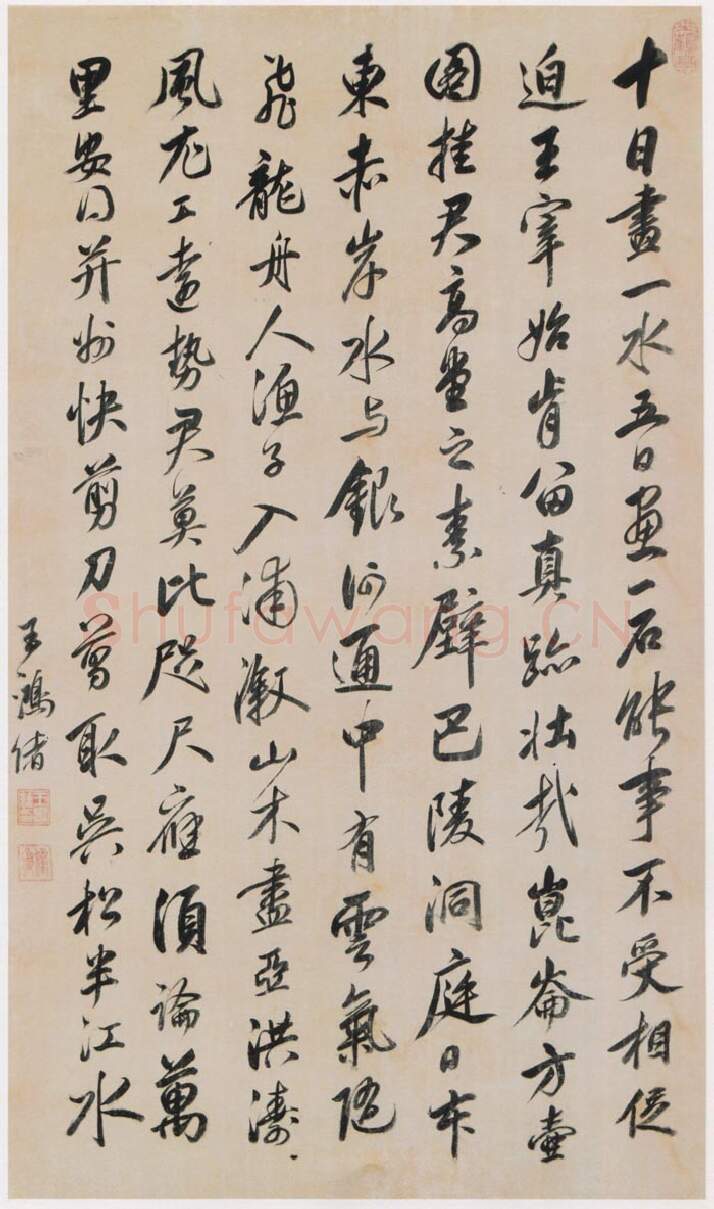 十日畫一水五日畫一石能事不受相促
迫王宰始肯留真跡壯哉崑崙方壺
圖挂君高堂之素壁巴陵洞庭日本
東赤岸水与銀河通中有雲氣隨
飛龍舟人漁子入浦漵山木盡亞洪濤
風尤工遠勢君莫比咫尺應須論萬
里安得并州快剪刀剪取吳松半江水
王鴻緒
Shufawang.CN